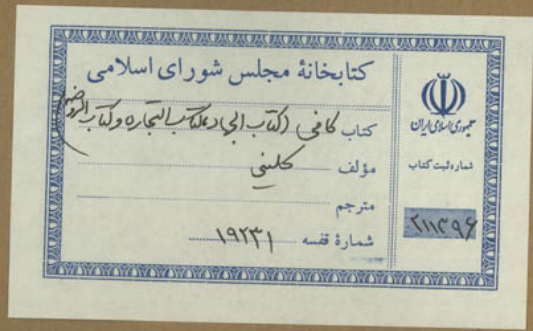 کتابخانهٔ مجلس شورای اسلامی
کتاب کافی (کتاب الجهاد، کتاب التجاره و کتاب الروضه)
مؤلف کلینی
مترجم
شمارهٔ قفسه ۱۹۲۳۱
جمهوری اسلامی ایران
شماره ثبت کتاب
۲۱۱۳۹۶